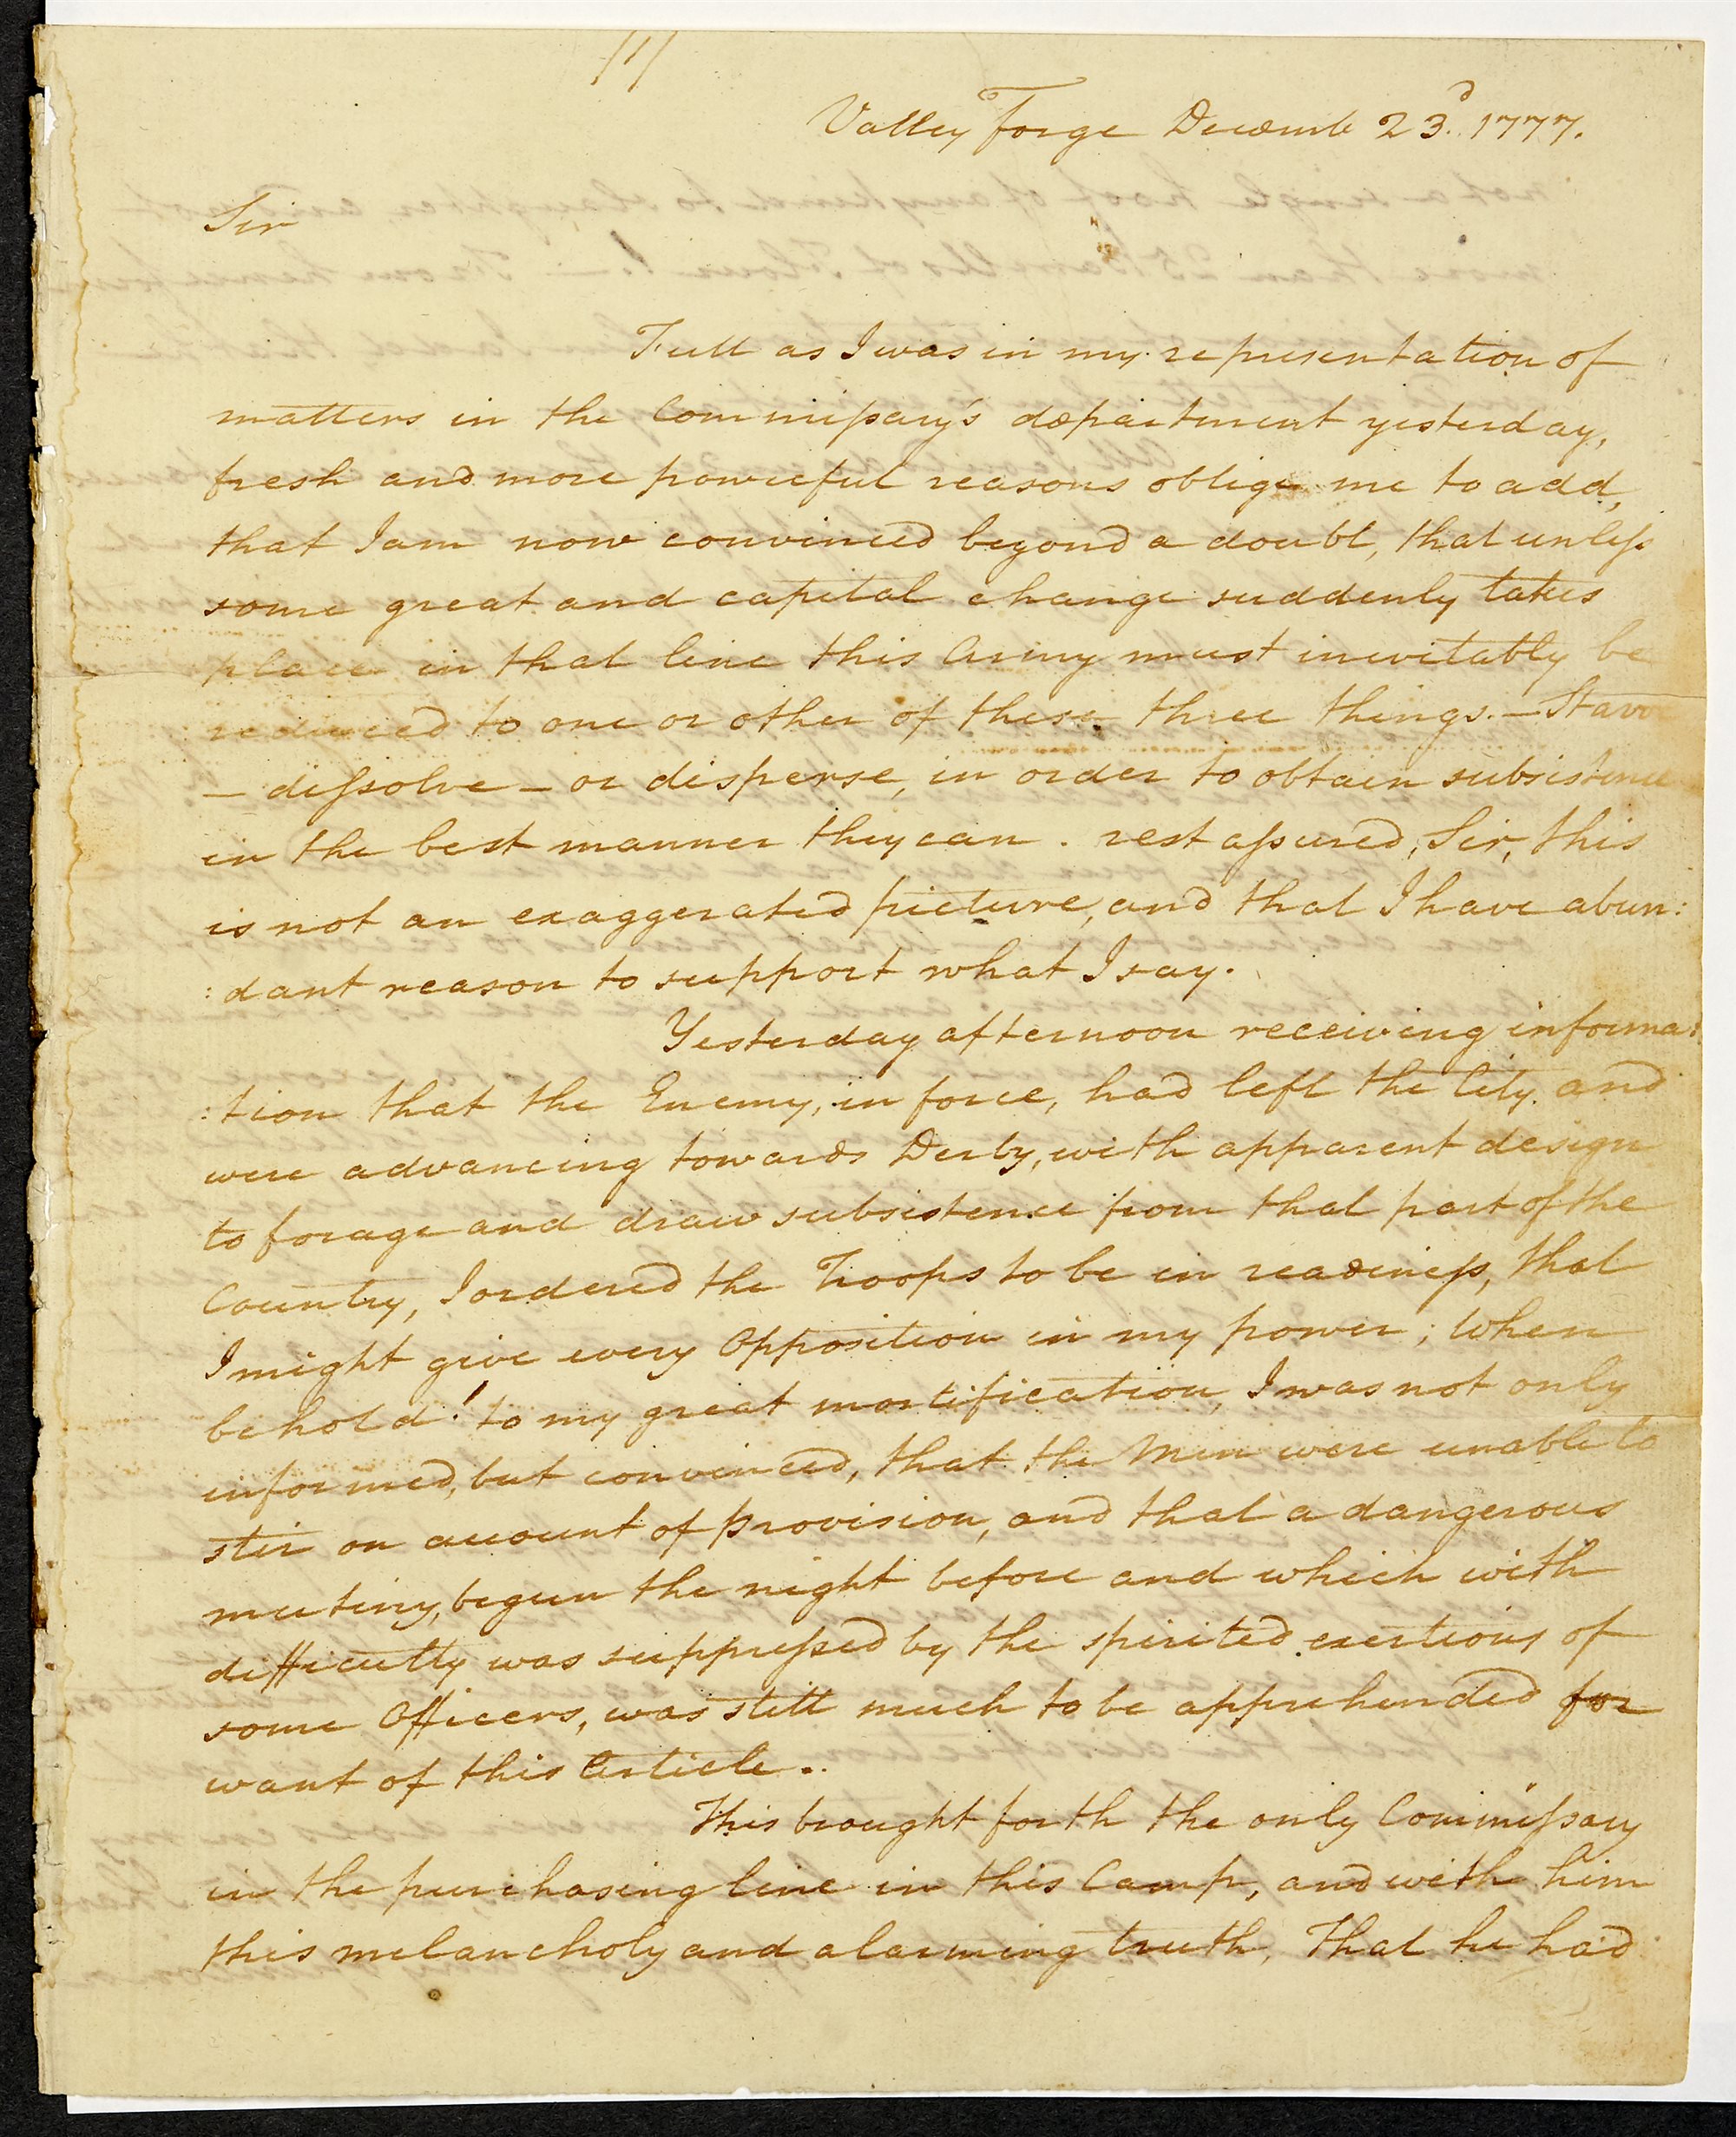 Valley Forge Decemb 23.d 1777.
Sir
Full as I was in my representation of
matters in the Commissary's department yesterday,
fresh and more powerful reasons oblige me to add,
that I am now convinced beyond a doubt, that unless
some great and capital change suddenly takes
place in that line this Army must inevitably be
reduced to one or other of these three things. — Starve
— dissolve — or disperse, in order to obtain subsistence
in the best manner they can. rest assured, Sir, this
is not an exaggerated picture, and that I have abun:
:dant reason to support what I say.
Yesterday afternoon receiving informa:
:tion that the Enemy, in force, had left the City and
were advancing towards Derby, with apparent design
to forage and draw subsistence from that part of the
Country, I ordered the Troops to be in readiness, that
I might give every Opposition in my power; when
behold! to my great mortification, I was not only
informed, but convinced, that the Men were unable to
stir on account of provision, and that a dangerous
mutiny, begun the night before and which with
difficulty was suppressed by the spirited exertions of
some Officers, was still much to be apprehended for
want of this Article.
This brought forth the only Commissary
in the purchasing line in this Camp, and with him
this melancholy and alarming truth, That he had